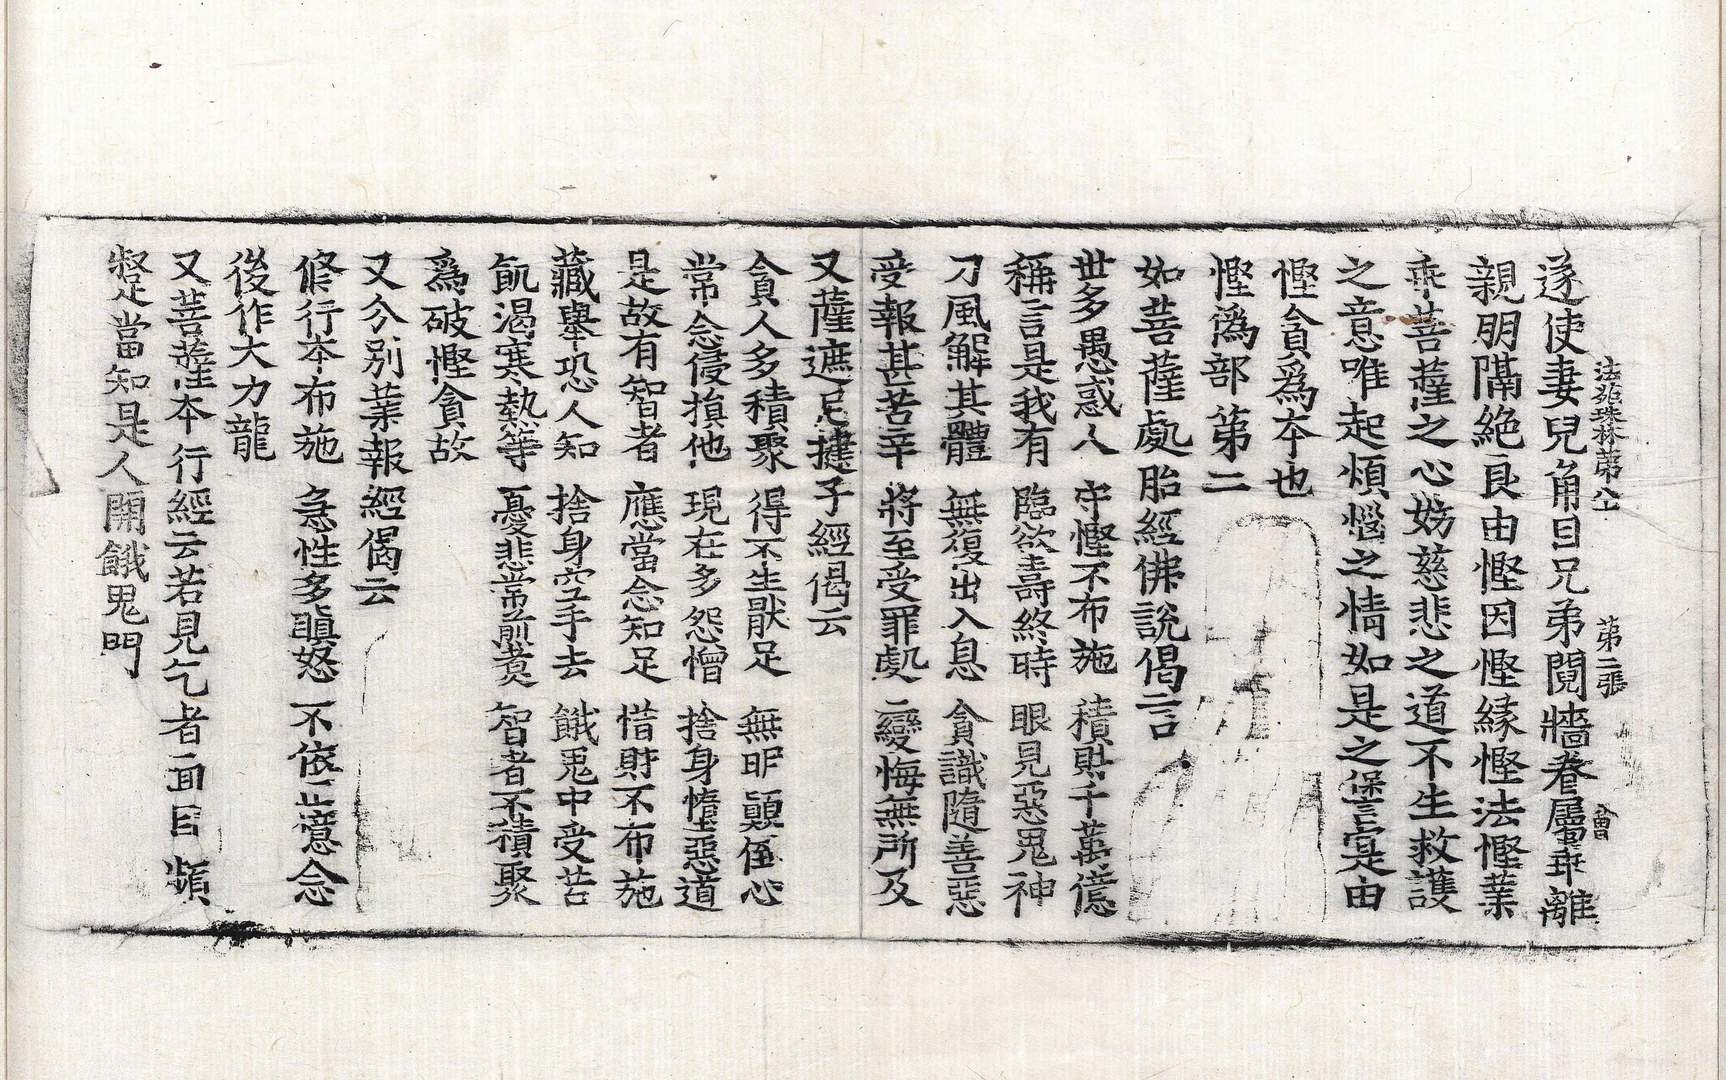 遂使妻兒角目兄弟鬩牆眷屬乖離
法苑珠林第八十 第二張 會
親朋隔絶良由慳因慳緣慳法慳業
乖菩薩之心妨慈悲之道不生救護
之意唯起煩惱之情如是之𠎝寔由
慳貪爲本也
慳僞部第二
如菩薩處胎經佛說偈言
世多愚惑人 守慳不布施 積財千萬億
稱言是我有 臨欲壽終時 眼見惡鬼神
刀風解其體 無復出入息 貪識隨善惡
受報甚苦辛 將至受罪處 變悔無所及
又薩遮尼揵子經偈云
貪人多積聚 得不生猒足 無明顚倒心
常念侵損他 現在多怨憎 捨身墮惡道
是故有智者 應當念知足 惜財不布施
藏擧恐人知 捨身空手去 餓鬼中受苦
飢渴寒熱等 憂悲常煎煮 智者不積聚
爲破慳貪故
又分别業報經偈云
修行本布施 急性多瞋怒 不依正憶念
後作大力龍
又菩薩本行經云若見乞者面目頻
蹙當知是人開餓鬼門